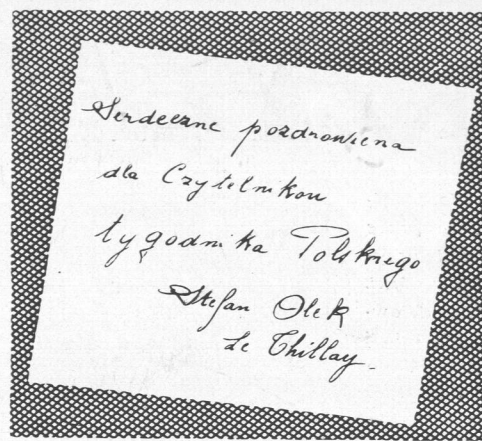 Serdeczne pozdrowiena
dla Czytelnikow
tygodnika Polskiego
Stefan Olek
Le Thillay.